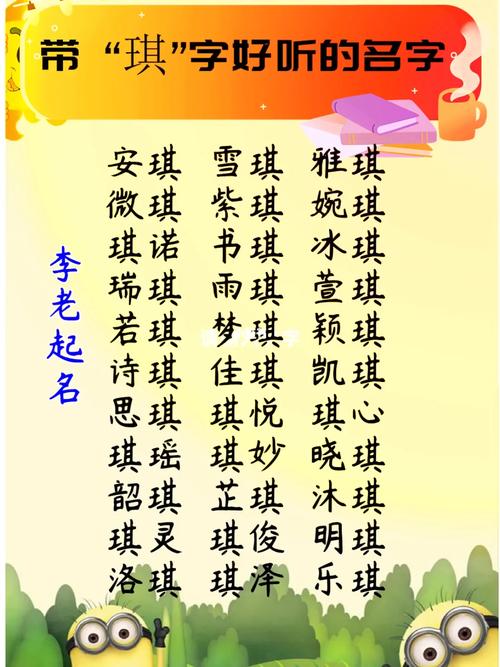 带“琪”字好听的名字
安琪 雪琪 雅琪
微琪 紫琪 婉琪
琪诺 书琪 冰琪
瑞琪 雨琪 萱琪
若琪 梦琪 颖琪
诗琪 佳琪 凯琪
思琪 琪悦 琪心
琪瑶 琪妙 晓琪
韶琪 芷琪 沐琪
琪灵 琪俊 明琪
洛琪 琪泽 乐琪
李老起名